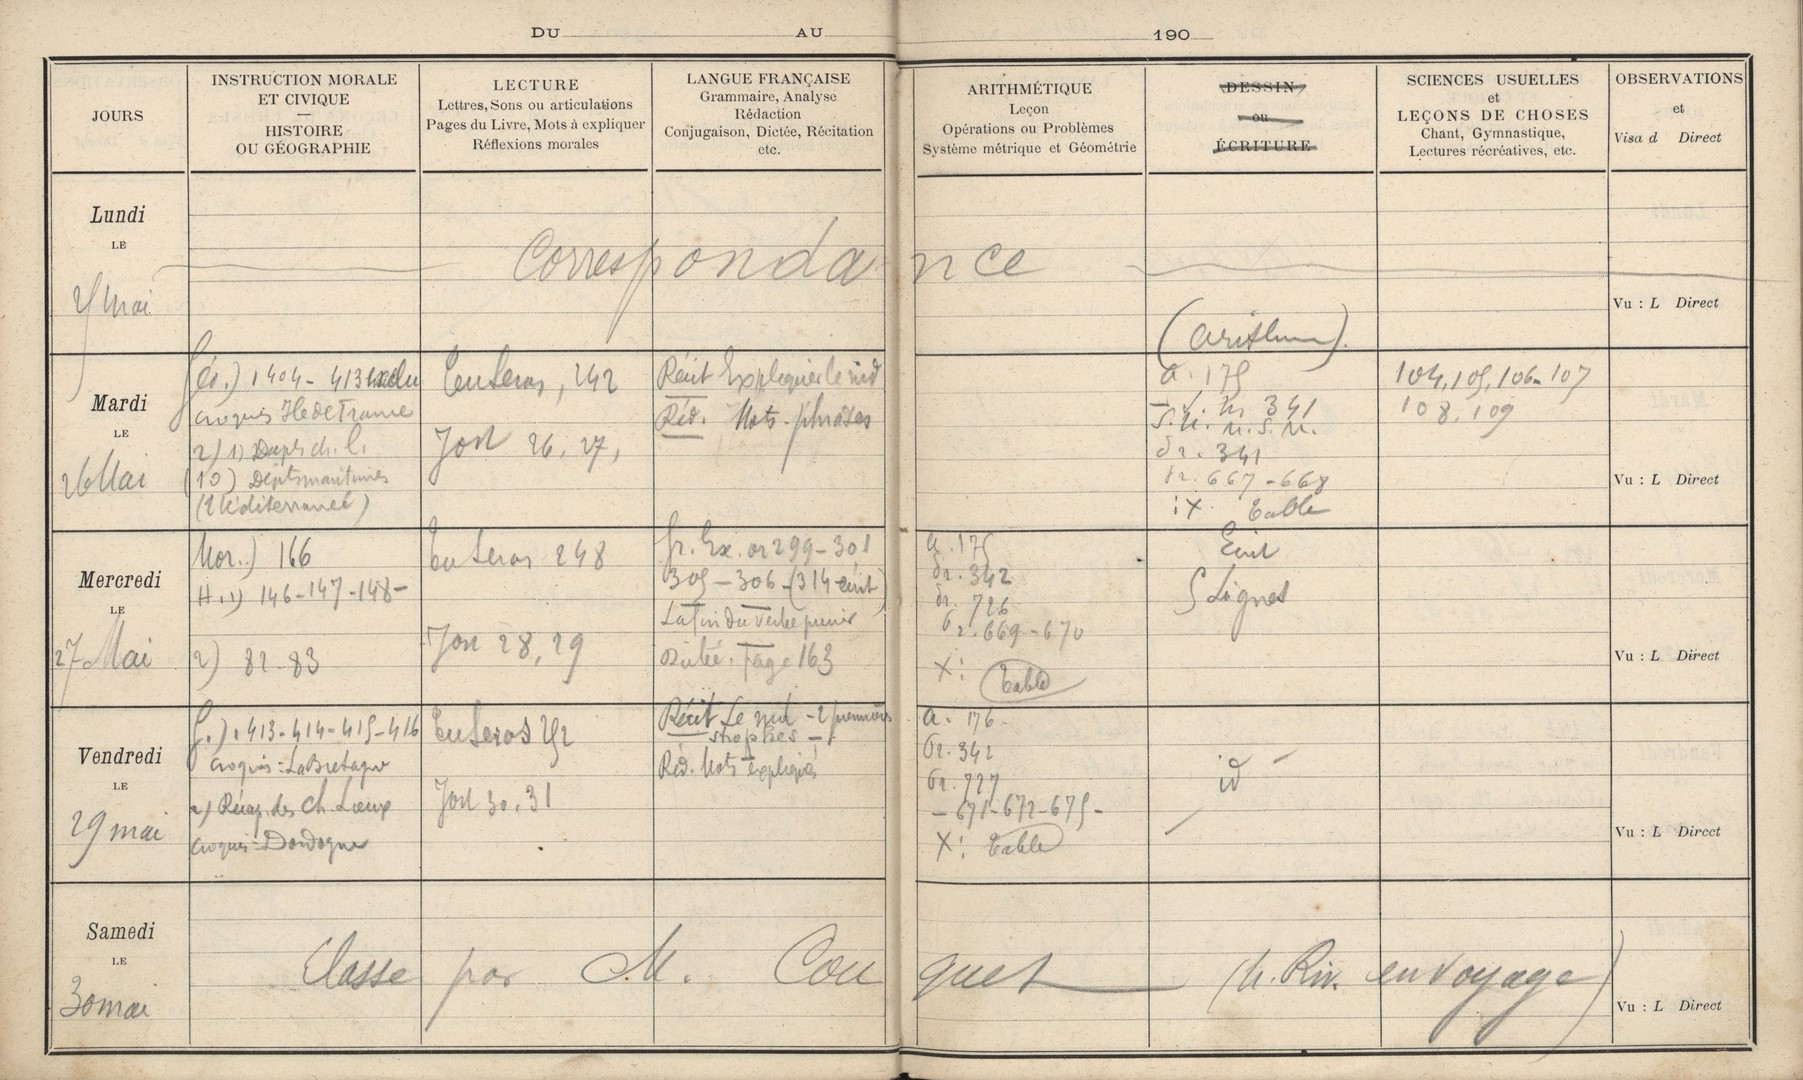 DU AU 190
JOURS
INSTRUCTION MORALE
ET CIVIQUE
—
HISTOIRE
OU GÉOGRAPHIE
LECTURE
Lettres, Sons ou articulations
Pages du Livre, Mots à expliquer
Réflexions morales
LANGUE FRANÇAISE
Grammaire, Analyse
Rédaction
Conjugaison, Dictée, Récitation
etc.
ARITHMÉTIQUE
Leçon
Opérations ou Problèmes
Système métrique et Géométrie
DESSIN
ou
ÉCRITURE
SCIENCES USUELLES
et
LEÇONS DE CHOSES
Chant, Gymnastique,
Lectures récréatives, etc.
OBSERVATIONS
et
Visa d Direct
Lundi
LE
25 Mai
Correspondance
(Arithm).
Vu : L Direct
Mardi
LE
26 Mai
Géo.) 1404 - 413 exclu
croquis Ile de France
2) 1)
(10) Dépts maritimes
(Méditerranée)
242
26, 27,
Récit Expliquer le nid
Réd. Mots - phrases
a. 175
341
341
667 - 668
: X. Table
104, 105, 106 - 107
108, 109
Vu : L Direct
Mercredi
LE
27 Mai
Mor.) 166
H. 1) 146 - 147 - 148 -
2) 82 - 83
248
28, 29
gr. Ex. or 299 - 301
305 - 306 - (314 écrit)
La fin du verbe
Dictée. Page 163
a. 175
342
726
669 - 670
X : Table
Ecrit
5 Lignes
Vu : L Direct
Vendredi
LE
29 mai
G.) 413 - 414 - 415 - 416
croquis : La Bretagne
2) Récap. des Ch. Lieux
croquis : Dordogne
252
30, 31
Récit Le nid - 2 premières
strophes -
Réd. Mots expliqués
a. 176 -
342
727
- 671 - 672 - 675 -
X : Table
id
Vu : L Direct
Samedi
LE
30 mai
Classe par M. Couquet (M. Riv. en voyage)
Vu : L Direct